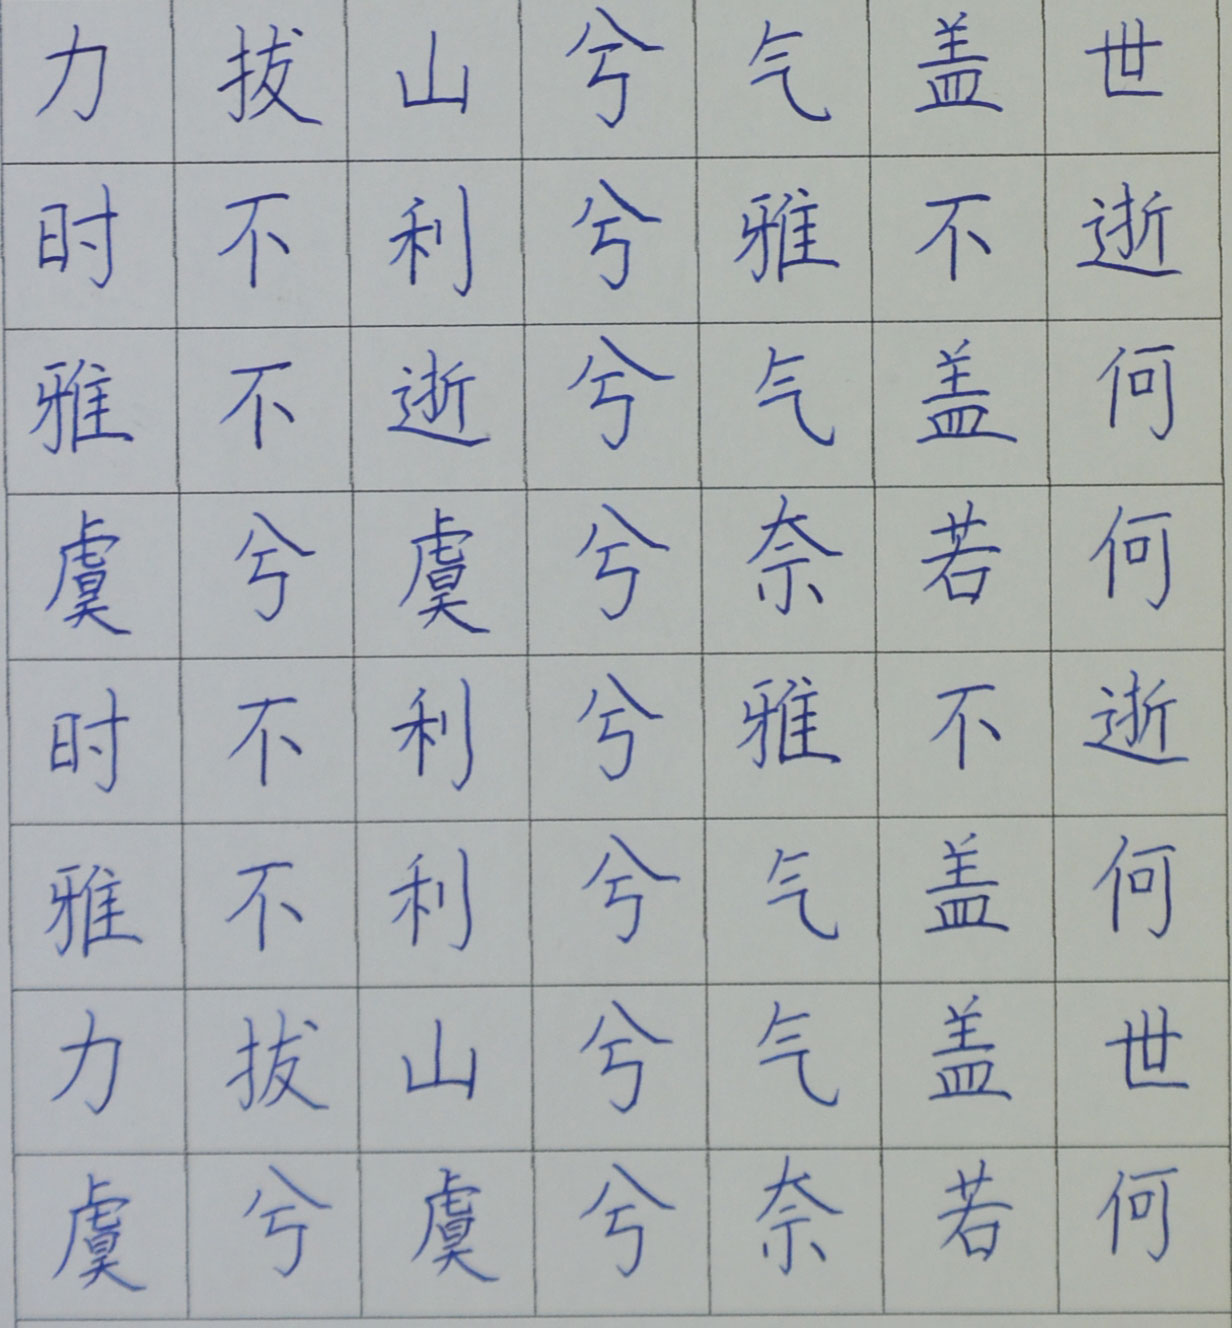 力拔山兮气盖世
时不利兮雅不逝
雅不逝兮气盖何
虞兮虞兮奈若何
时不利兮雅不逝
雅不利兮气盖何
力拔山兮气盖世
虞兮虞兮奈若何